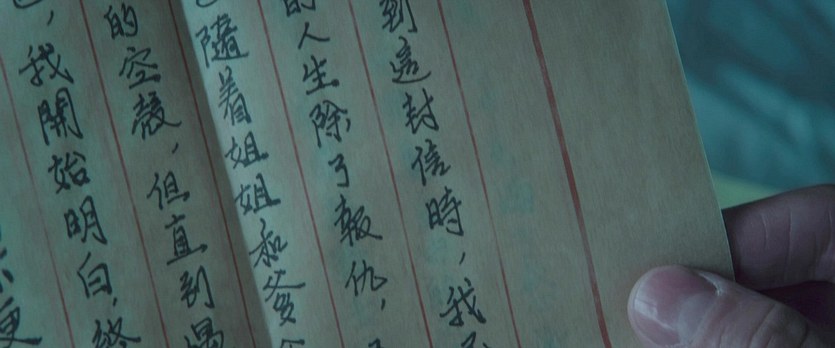 到這封信時，我
的人生除了報仇，
隨着姐姐和爹
的空殼，但直到
，我開始明白，終
更